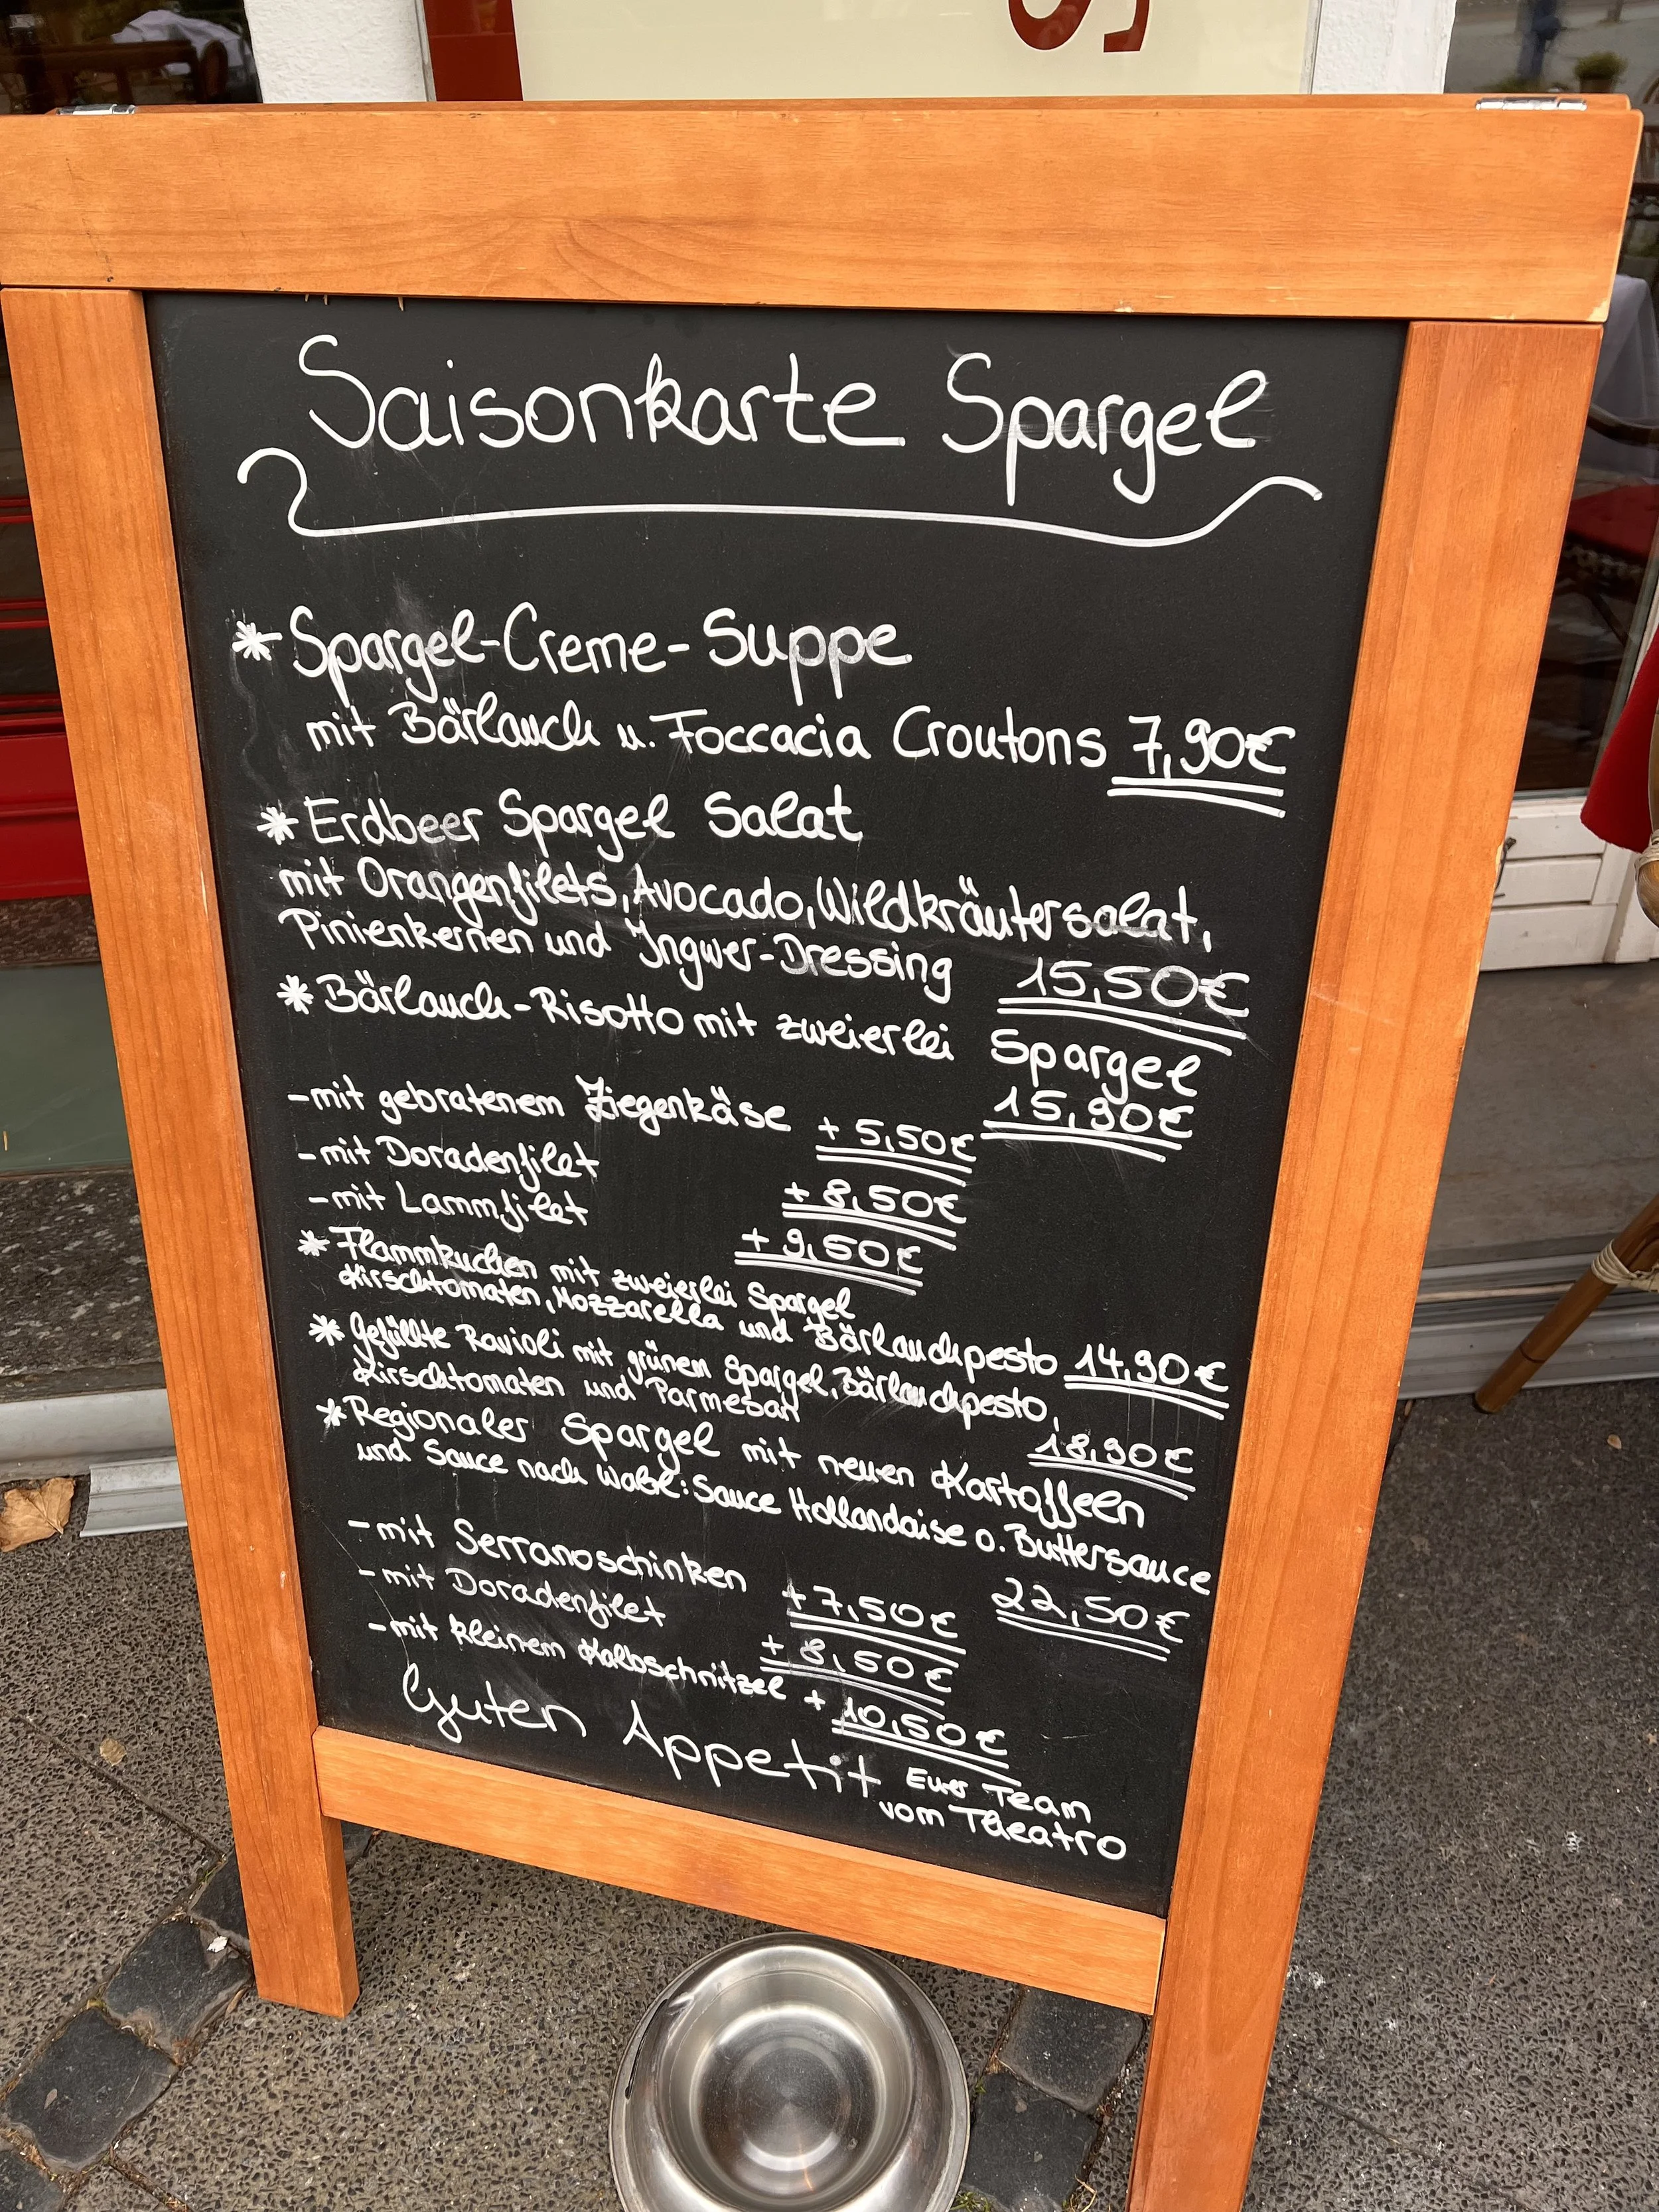 S
Saisonkarte Spargel
* Spargel-Creme-Suppe
mit Bärlauch u. Foccacia Croutons 7,90€
* Erdbeer Spargel Salat
mit Orangenfilets, Avocado, Wildkräutersalat,
Pinienkernen und Ingwer-Dressing 15,50€
* Bärlauch-Risotto mit zweierlei Spargel
15,90€
- mit gebratenem Ziegenkäse + 5,50€
- mit Doradenfilet + 8,50€
- mit Lammfilet + 9,50€
* Flammkuchen mit zweierlei Spargel
Kirschtomaten, Mozzarella und Bärlauchpesto 14,90€
* Gefüllte Ravioli mit grünen Spargel, Bärlauchpesto,
Kirschtomaten und Parmesan 18,90€
* Regionaler Spargel mit neuen Kartoffeln
und Sauce nach Wahl: Sauce Hollandaise o. Buttersauce
22,50€
- mit Serranoschinken + 7,50€
- mit Doradenfilet + 8,50€
- mit kleinem Kalbschnitzel + 10,50€
Guten Appetit
Euer Team
vom Theatro